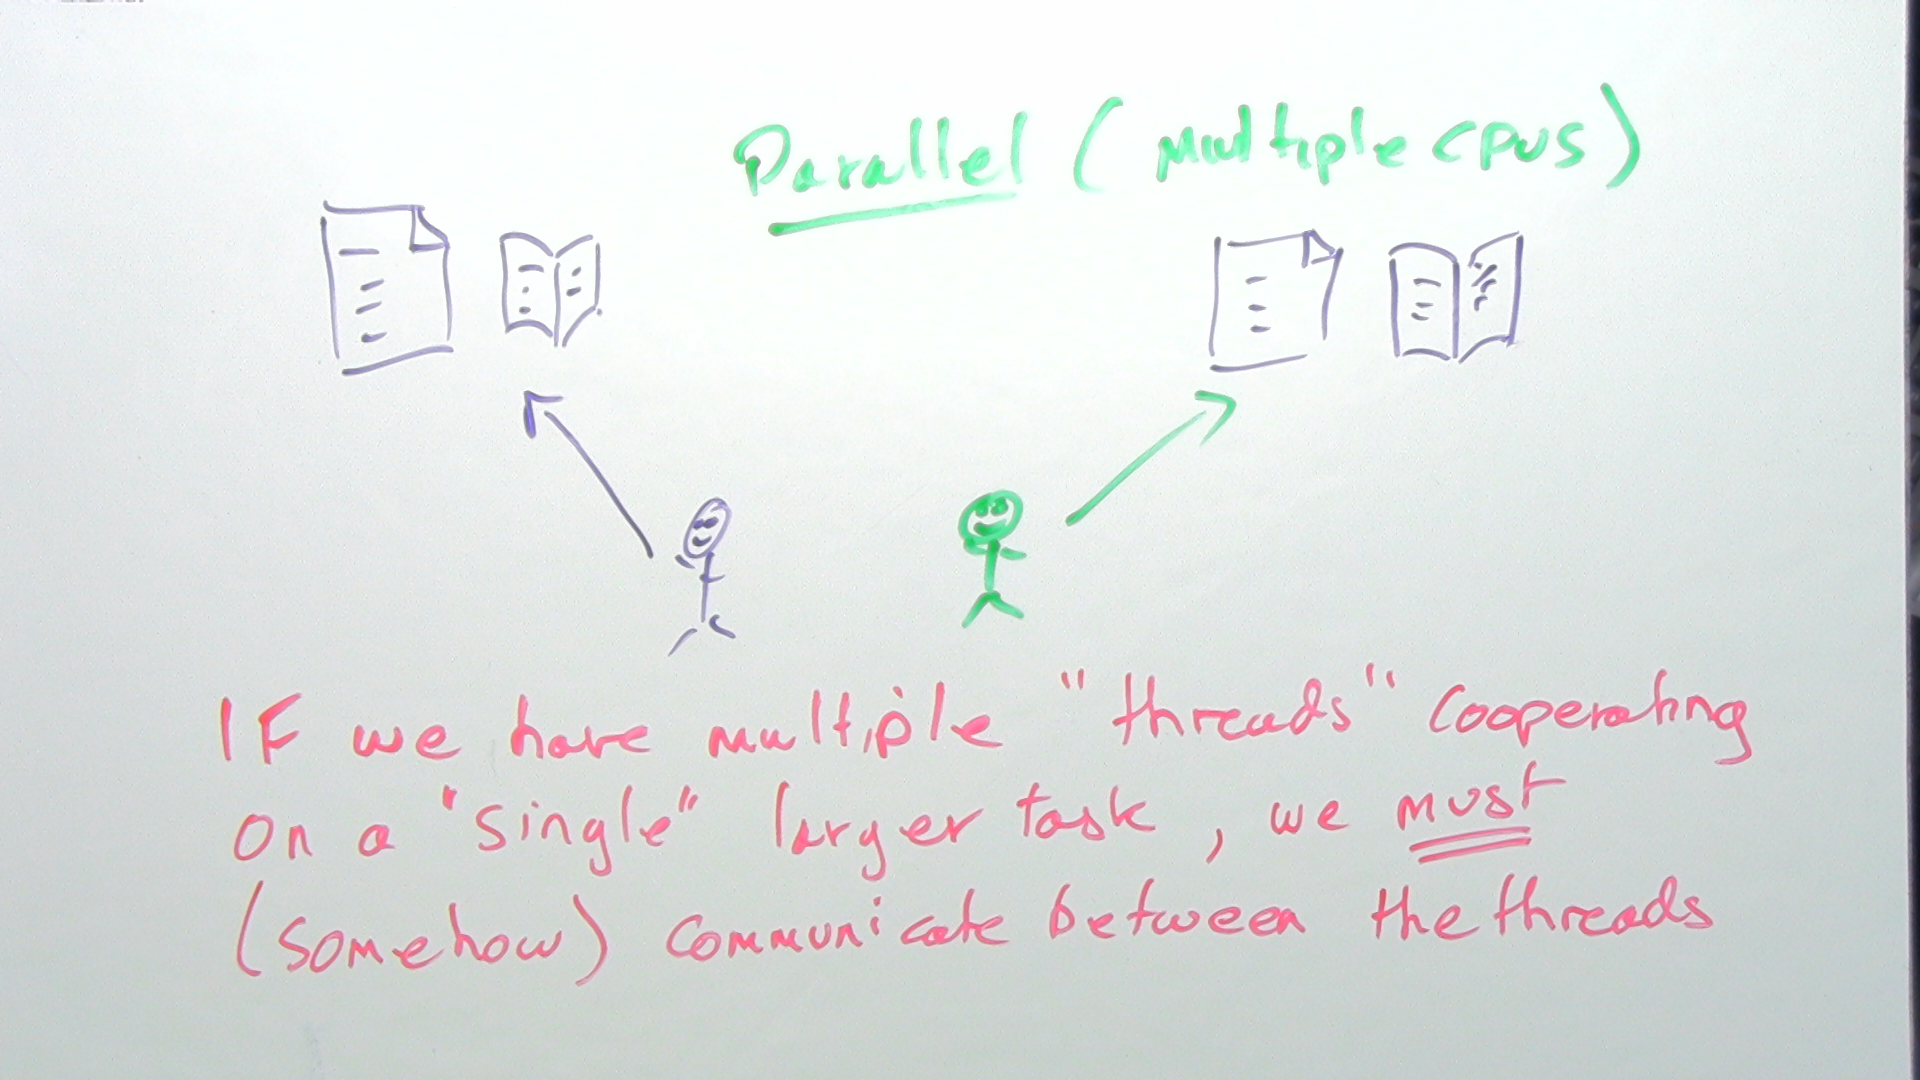 Parallel (Multiple CPUS)
IF we have multiple "threads" cooperating
on a "single" larger task, we must
(somehow) communicate between the threads